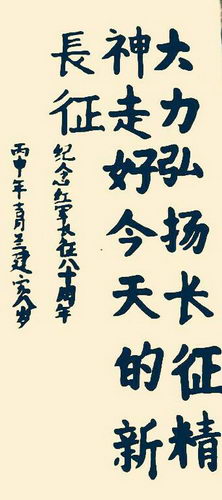 大力弘扬长征精
神走好今天的新
長征
纪念红军长征八十周年
丙申年